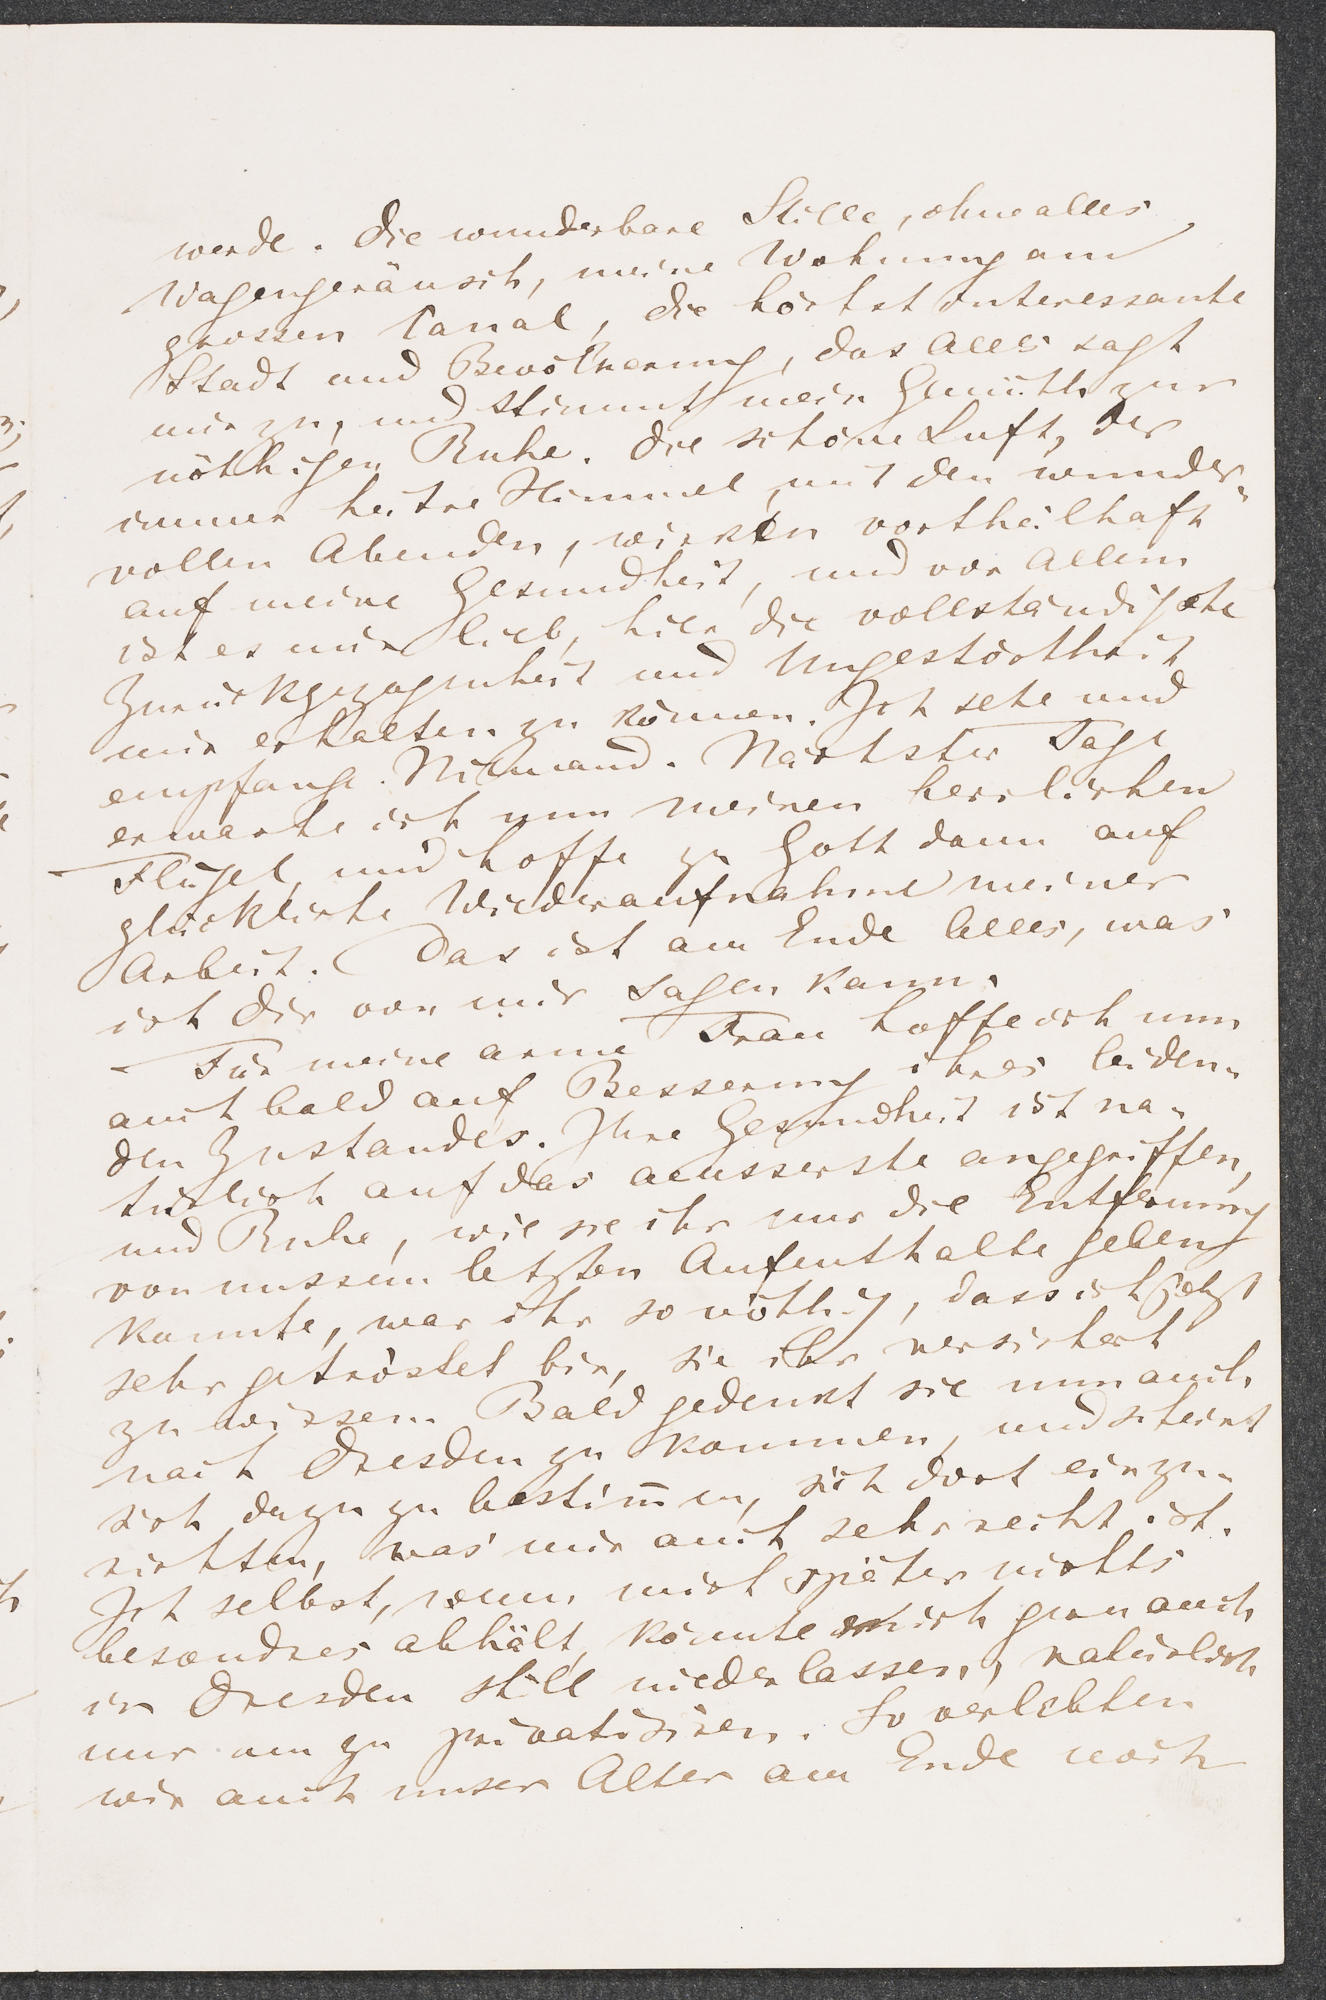 werde. Die wunderbare Stille, ohne alles
Wagengeräusch, meine Wohnung am
grossen Canal, die höchst interessante
Stadt und Bevölkerung, das Alles sagt
mir zu, und stimmt mein Gemüth zur
nöthigen Ruhe. Die schöne Luft, der
immer heitre Himmel mit den wunder-
vollen Abenden, wirken vortheilhaft
auf meine Gesundheit, und vor Allem
ist es mir lieb, hier die vollständigste
Zurückgezogenheit und Ungestörtheit
mir erhalten zu können. Ich sehe und
empfange Niemand. Nächster Tage
erwarte ich nun meinen herrlichen
Flügel, und hoffe zu Gott dann auf
glückliche Wiederaufnahme meiner
Arbeit. Das ist am Ende Alles, was
ich Dir von mir sagen kann.
Für meine arme Frau hoffe ich nun
auch bald auf Besserung ihres leiden-
den Zustandes. Ihre Gesundheit ist na-
türlich auf das aeusserste angegriffen,
und Ruhe, wie sie ihr nur die Entfernung
von unserem letzten Aufenthalte geben
konnte, war ihr so nöthig, dass ich jetzt
sehr getröstet bin, sie ihr versichert
zu wissen. Bald gedenkt sie nun auch
nach Dresden zu kommen, und scheint
sich dazu zu bestimmen, sich dort einzu-
richten, was mir auch sehr recht ist.
Ich selbst, wenn mich später nichts
besondres abhält, könnte mich gern auch
in Dresden still niederlassen, natürlich
nur um zu privatisiren. So verlebten
wir auch unser Alter am Ende noch